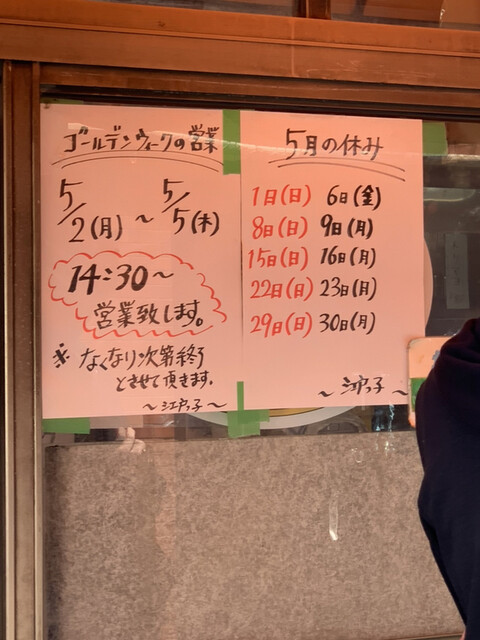 ゴールデンウィークの営業
5/2(月)～5/5(木)
14:30～
営業致します。
※なくなり次第終了
とさせて頂きます。
～江戸っ子～
5月の休み
1日(日) 6日(金)
8日(日) 9日(月)
15日(日) 16日(月)
22日(日) 23日(月)
29日(日) 30日(月)
～江戸っ子～